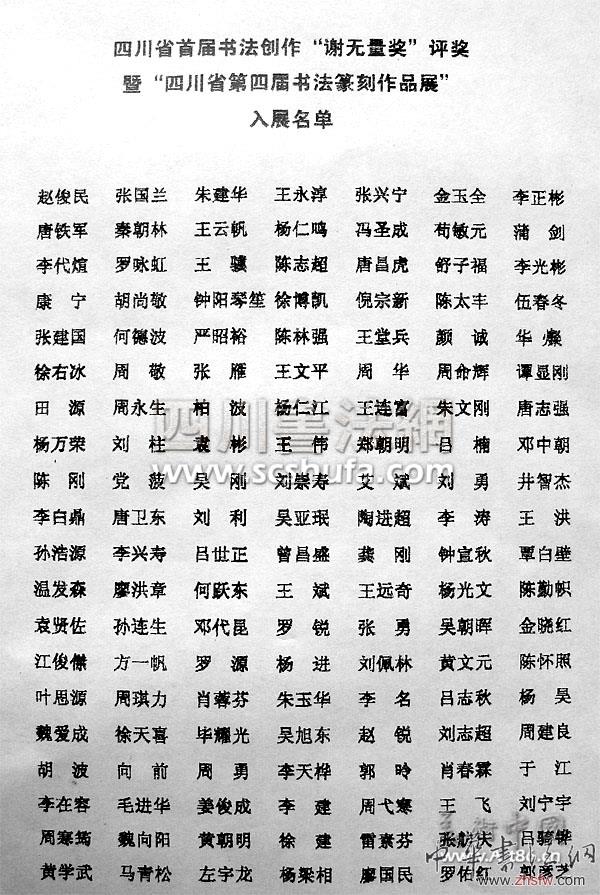 四川省首届书法创作“谢无量奖”评奖
暨“四川省第四届书法篆刻作品展”
入展名单
赵俊民 张国兰 朱建华 王永淳 张兴宁 金玉全 李正彬
唐铁军 秦朝林 王云帆 杨仁鸣 冯圣成 荀敏元 蒲剑
李代煊 罗咏虹 王骥 陈志超 唐昌虎 舒子福 李光彬
康宁 胡尚敬 钟阳琴笙 徐博凯 倪宗新 陈太丰 伍春冬
张建国 何德波 严昭裕 陈林强 王堂兵 颜诚 华燦
徐右冰 周敬 张雁 王文平 周华 周命辉 谭显刚
田源 周永生 柏波 杨仁江 王连富 朱文刚 唐志强
四川書法網
杨万荣 刘柱 袁彬 王伟 郑朝明 吕楠 邓中朝
www.scshufa.com
陈刚 党菠 吴刚 刘崇寿 艾斌 刘勇 井智杰
李白鼎 唐卫东 刘利 吴亚珉 陶进超 李涛 王洪
孙浩源 李兴寿 吕世正 曾昌盛 龚刚 钟宣秋 覃白壁
温发森 廖洪章 何跃东 王斌 王远奇 杨光文 陈勤帜
袁贤佐 孙连生 邓代昆 罗锐 张勇 吴朝晖 金晓红
江俊傑 方一帆 罗源 杨进 刘佩林 黄文元 陈怀照
叶思源 周琪力 肖蓉芬 朱玉华 李名 吕志秋 杨昊
魏爱成 徐天喜 毕耀光 吴旭东 赵锐 刘志超 周建良
胡波 向前 周勇 李天桦 郭昤 肖春霖 于江
李在容 毛进华 姜俊成 李建 周弋寒 王飞 刘宁宇
周寒筠 魏向阳 黄朝明 徐建 雷素芬
黄学武 马青松 左宇龙 杨梁相 廖国民 罗佑红 郭彦芝
www.zhsfw.com